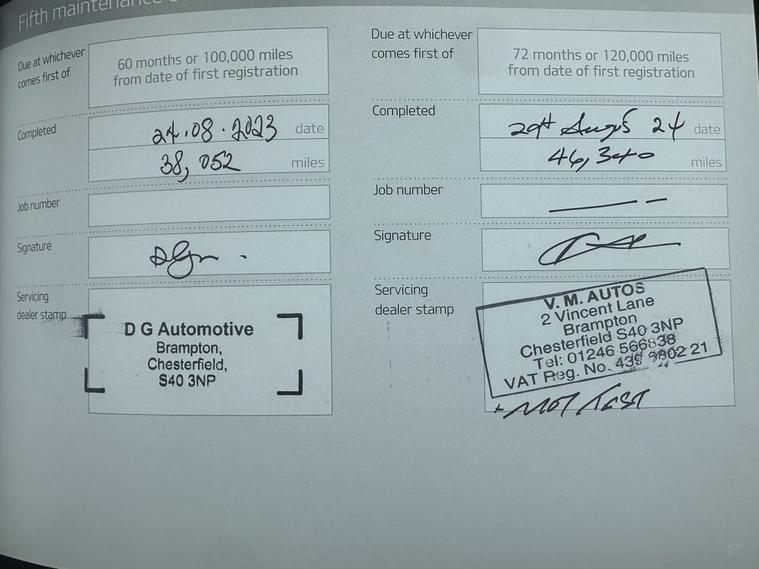 Fifth maintenance
Due at whichever
comes first of
60 months or 100,000 miles
from date of first registration
Completed
24.08.2023 date
38,052 miles
Job number
Signature
Servicing
dealer stamp
D G Automotive
Brampton,
Chesterfield,
S40 3NP
Due at whichever
comes first of
72 months or 120,000 miles
from date of first registration
Completed
24 date
46,340 miles
Job number
Signature
Servicing
dealer stamp
V. M. AUTOS
2 Vincent Lane
Brampton
Chesterfield S40 3NP
Tel: 01246 566838
VAT Reg. No. 21
+ MOT TEST
17